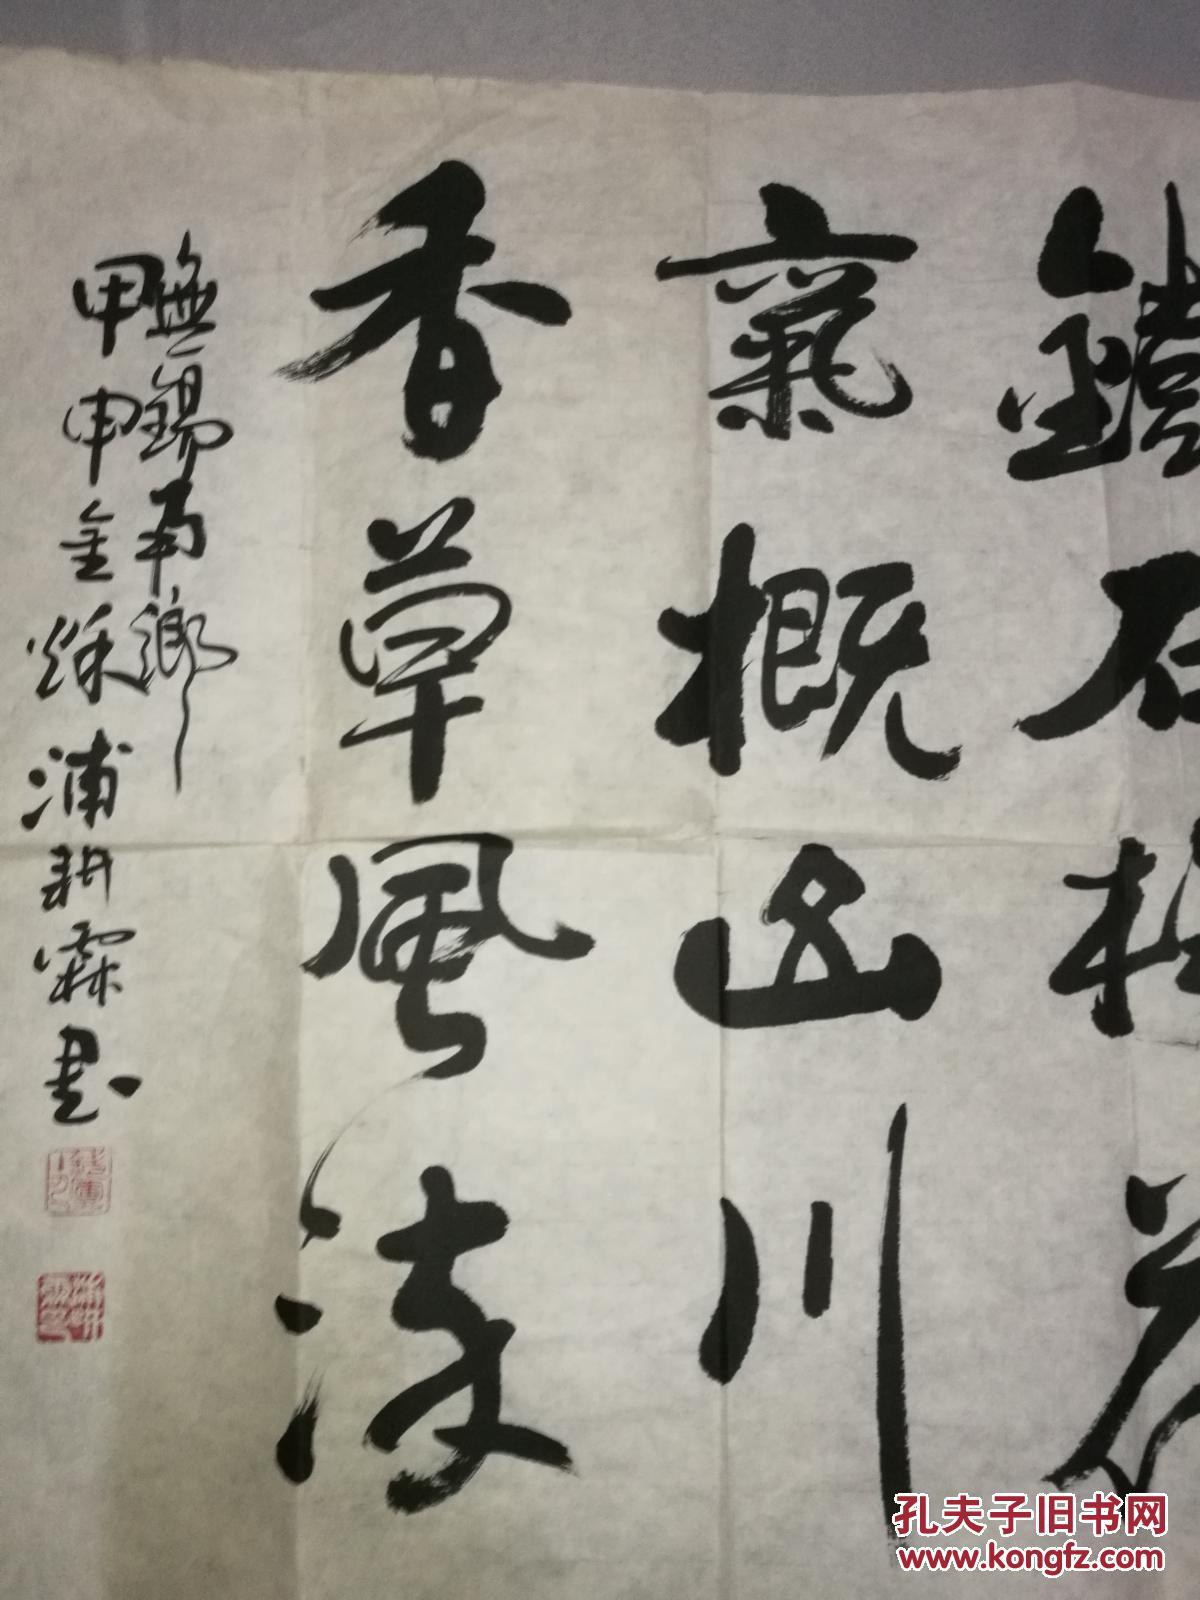 鐵石梅花
氣概山川
香草風流
無錫南鄉
甲申金秋浦耕霖書
孔夫子旧书网
www.kongfz.com